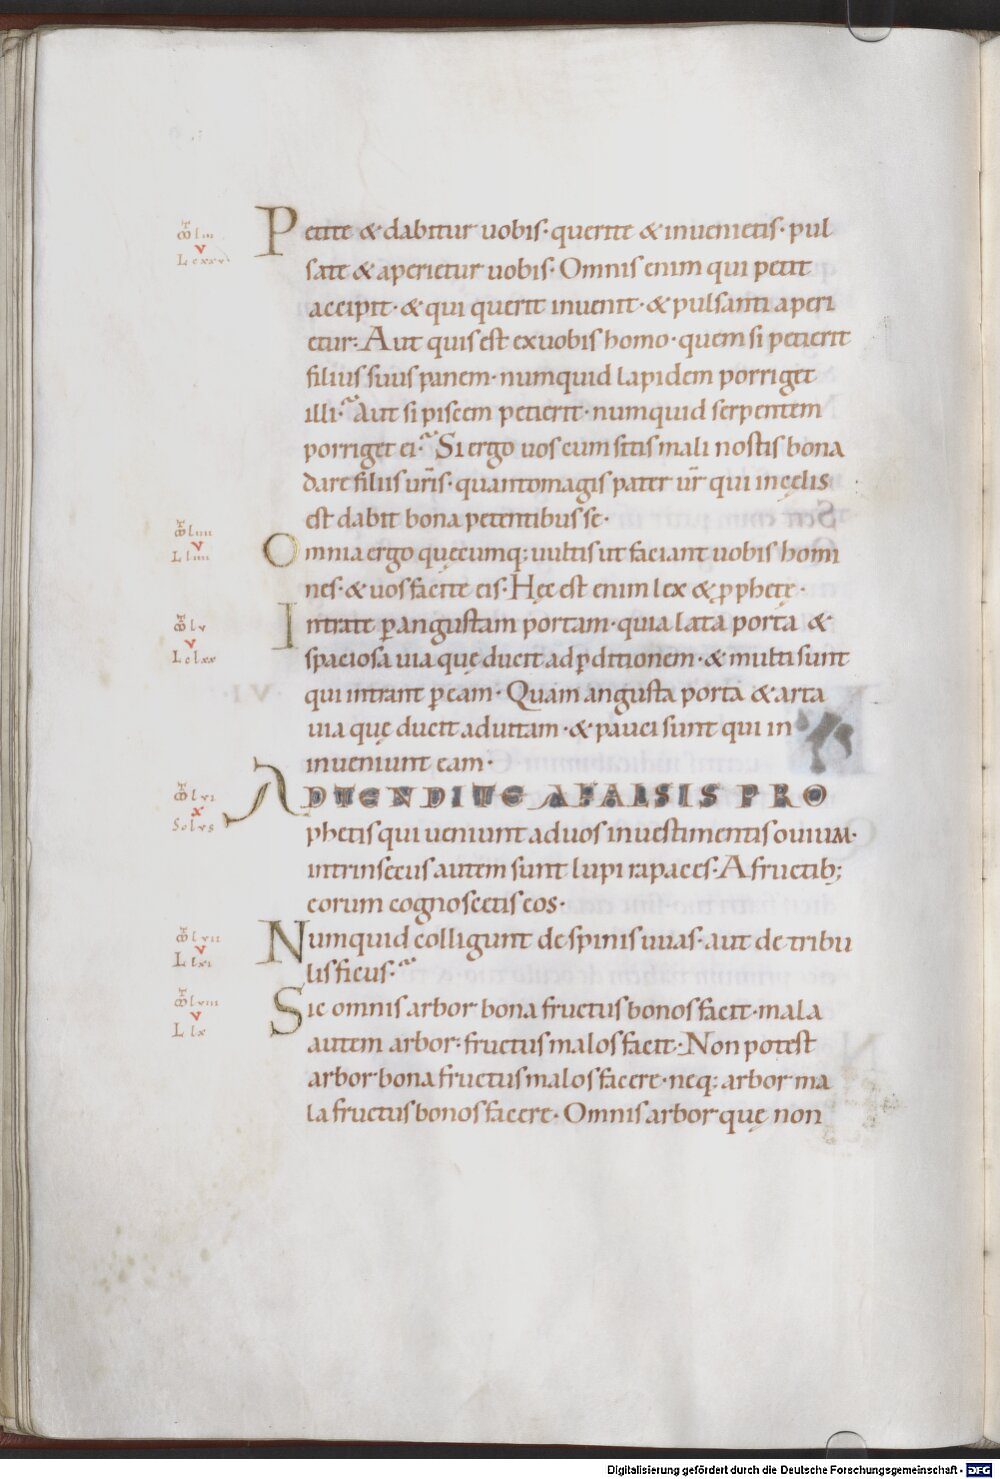 Petite & dabitur uobis· querite & inuenietis· pul
sate & aperietur uobis· Omnis enim qui petit
accipit· & qui querit inuenit· & pulsanti aperi
etur: Aut quis est ex uobis homo· quem si petierit
filius suus panem· numquid lapidem porriget
illi? Aut si piscem petierit· numquid serpentem
porriget ei? Si ergo uos cum sitis mali nostis bona
dare filiis ur̄is· quantomagis pater ur̄ qui in cęlis
est dabit bona petentibus se·
Omnia ergo quęcumq; uultis ut faciant uobis homi
nes· & uos facite eis· Hęc est enim lex & ꝓphetę·
Intrate ꝑ angustam portam· quia lata porta &
spaciosa uia quę ducit ad ꝑditionem· & multi sunt
qui intrant ꝑ eam· Quam angusta porta & arta
uia quę ducit ad uitam· & pauci sunt qui in
inueniunt eam·
ADTENDITE A FALSIS PRO
phetis qui ueniunt ad uos in uestimentis ouium·
intrinsecus autem sunt lupi rapaces· A fructib;
eorum cognoscetis eos·
Numquid colligunt de spinis uuas· aut de tribu
lis ficus?
Sic omnis arbor bona fructus bonos facit· mala
autem arbor: fructus malos facit· Non potest
arbor bona fructus malos facere· neq; arbor ma
la fructus bonos facere· Omnis arbor quę non
Digitalisierung gefördert durch die Deutsche Forschungsgemeinschaft - DFG